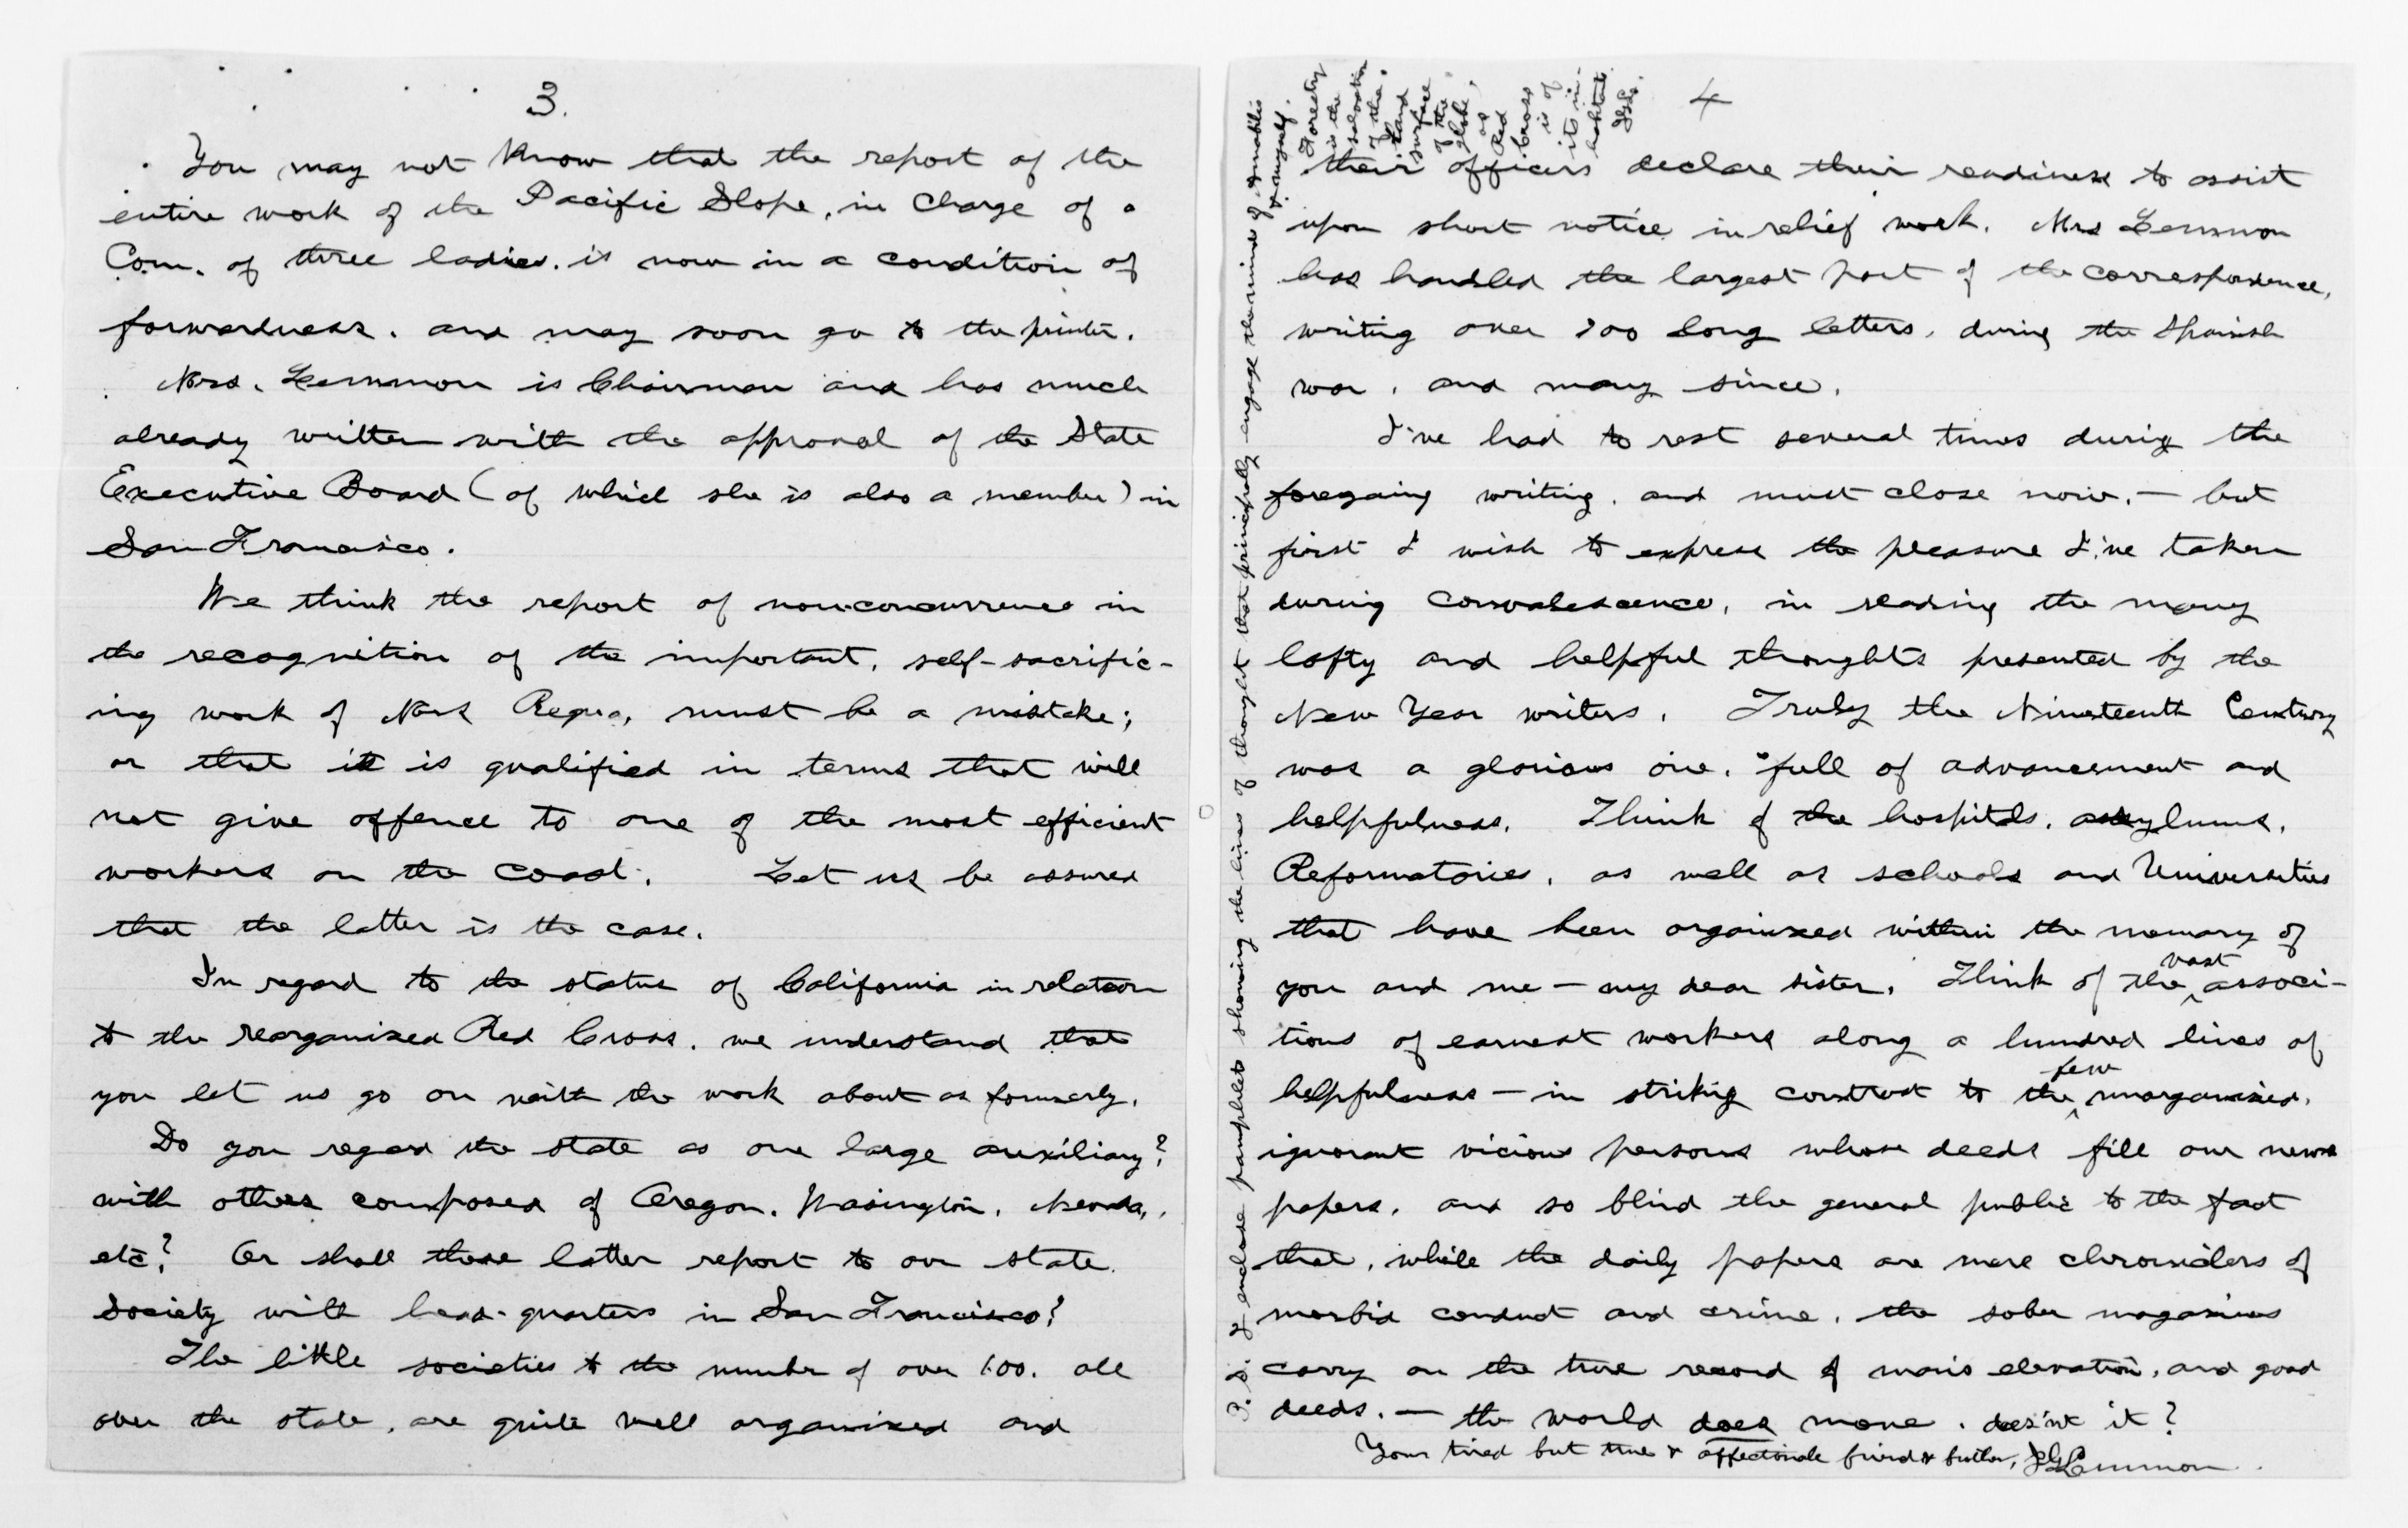 3.
You may not know that the report of the
entire work of the Pacific Slope, in charge of a
Com. of three ladies, is now in a condition of
forwardness, and may soon go to the printer.
Mrs. Lemmon is Chairman and has much
already written with the approval of the State
Executive Board (of which she is also a member) in
San Francisco.
We think the report of non-concurrence in
the recognition of the important, self-sacrific-
ing work of Mark Requa, must be a mistake;
or that it is qualified in terms that will
not give offence to one of the most efficient
workers on the coast. Let us be assured
that the latter is the case.
In regard to the status of California in relation
to the reorganized Red Cross, we understand that
you let us go on with the work about as formerly.
Do you regard the state as one large auxiliary?
with others composed of Oregon, Wasington, Nevada,
etc? Or shall those latter report to our state
society with head-quarters in San Francisco?
The little societies to the number of over 100. all
over the state, are quite well organized and
4
their officers declare their readiness to assist
upon short notice in relief work. Mrs Lemmon
has handled the largest part of the correspondence,
writing over 700 long letters, during the Spanish
war, and many since.
I've had to rest several times during the
foregoing writing, and must close now, — but
first I wish to express the pleasure I've taken
during convalescence, in reading the many
lofty and helpful thoughts presented by the
New Year writers. Truly the Nineteenth Century
was a glorious one, full of advancement and
helpfulness. Think of the hospitals, asylums,
Reformatories, as well as schools and Universities
that have been organized within the memory of
you and me — my dear sister. Think of the vast associ-
tions of earnest workers along a hundred lines of
helpfulness — in striking contrast to the few unorganized,
ignorant vicious persons whose deeds fill our news
papers, and so blind the general public to the fact
that, while the daily papers are mere chroniclers of
morbid conduct and crime, the sober magazines
carry on the true record of man's elevation, and good
deeds. — the world does move, does'nt it?
Your tired but true & affectionate friend & brother, J G Lemmon.
P.S. I enclose pamphlets showing the lines of thought that principally engage the minds of Amabilis
& myself.
Forestry
is the
salvation
of the
land
surface
of the
globe,
as
Red
Cross
is of
its in-
habitants.
JGL.